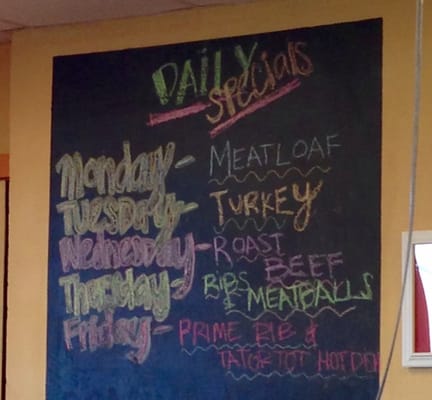 DAILY
specials
Monday - MEATLOAF
Tuesday - TURKEY
Wednesday - ROAST
BEEF
Thursday - RIBS
& MEATBALLS
Friday - PRIME RIB &
TATOR TOT HOTDISH